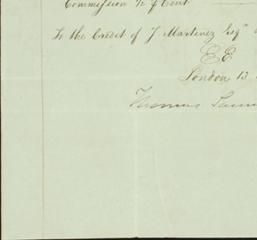 Commission ½ ⅌ Cent
To the Credit of J Martinez Esqʳ
E E
London 13
Thomas